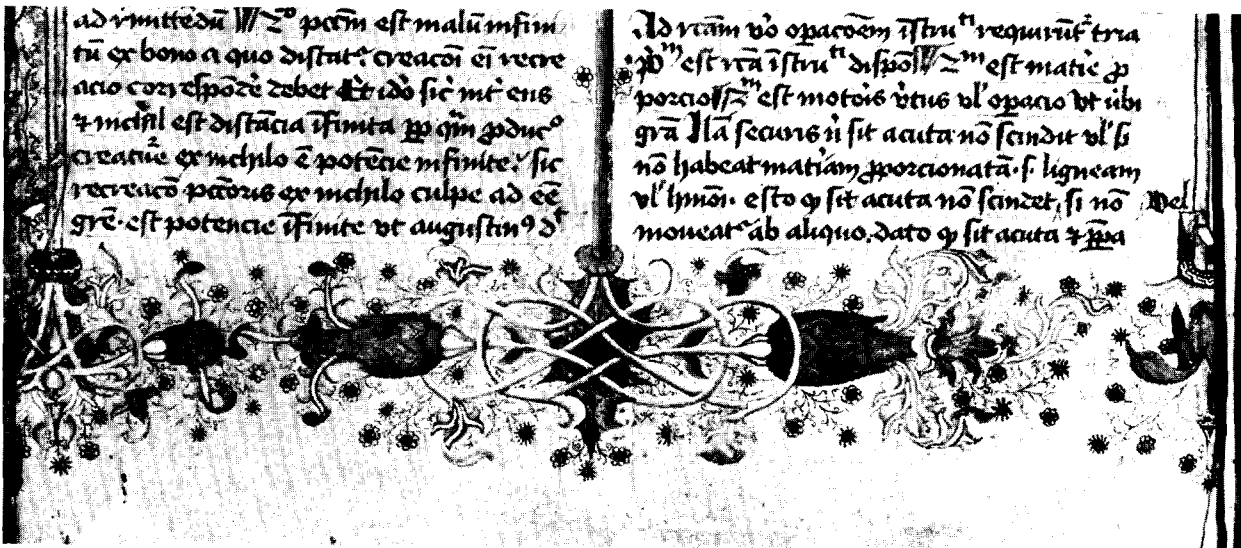 ad rmittēdū Zo pctm̄ est malū infini
tū ex bono a quo distat creacoī eī recre
acio correspōdē debet Et idō sic int ens
⁊ nichil est distācia īfinita pp qm̄ ꝓduco
creatuē ex nichilo ē potēcie infinite sic
recreacō pctōris ex nichilo culpe ad eē
grē· est potencie īfinite vt augustinꝰ dt
Ad rcām vo opacōem īstruti requirūt tria
pom est rcā īstruti dispo Zm est matie ꝓ
porcio Zm est motoīs vtus vl opacio vt ubi
grā Nā securis ni sit acuta nō scindit vl si
nō habeat matiam ꝓporcionatā· s· ligneam
vl hmōi· esto ꝙ sit acuta nō scindet, si nō
moueat ab aliquo. dato ꝙ sit acuta ⁊ ꝓpa
vel